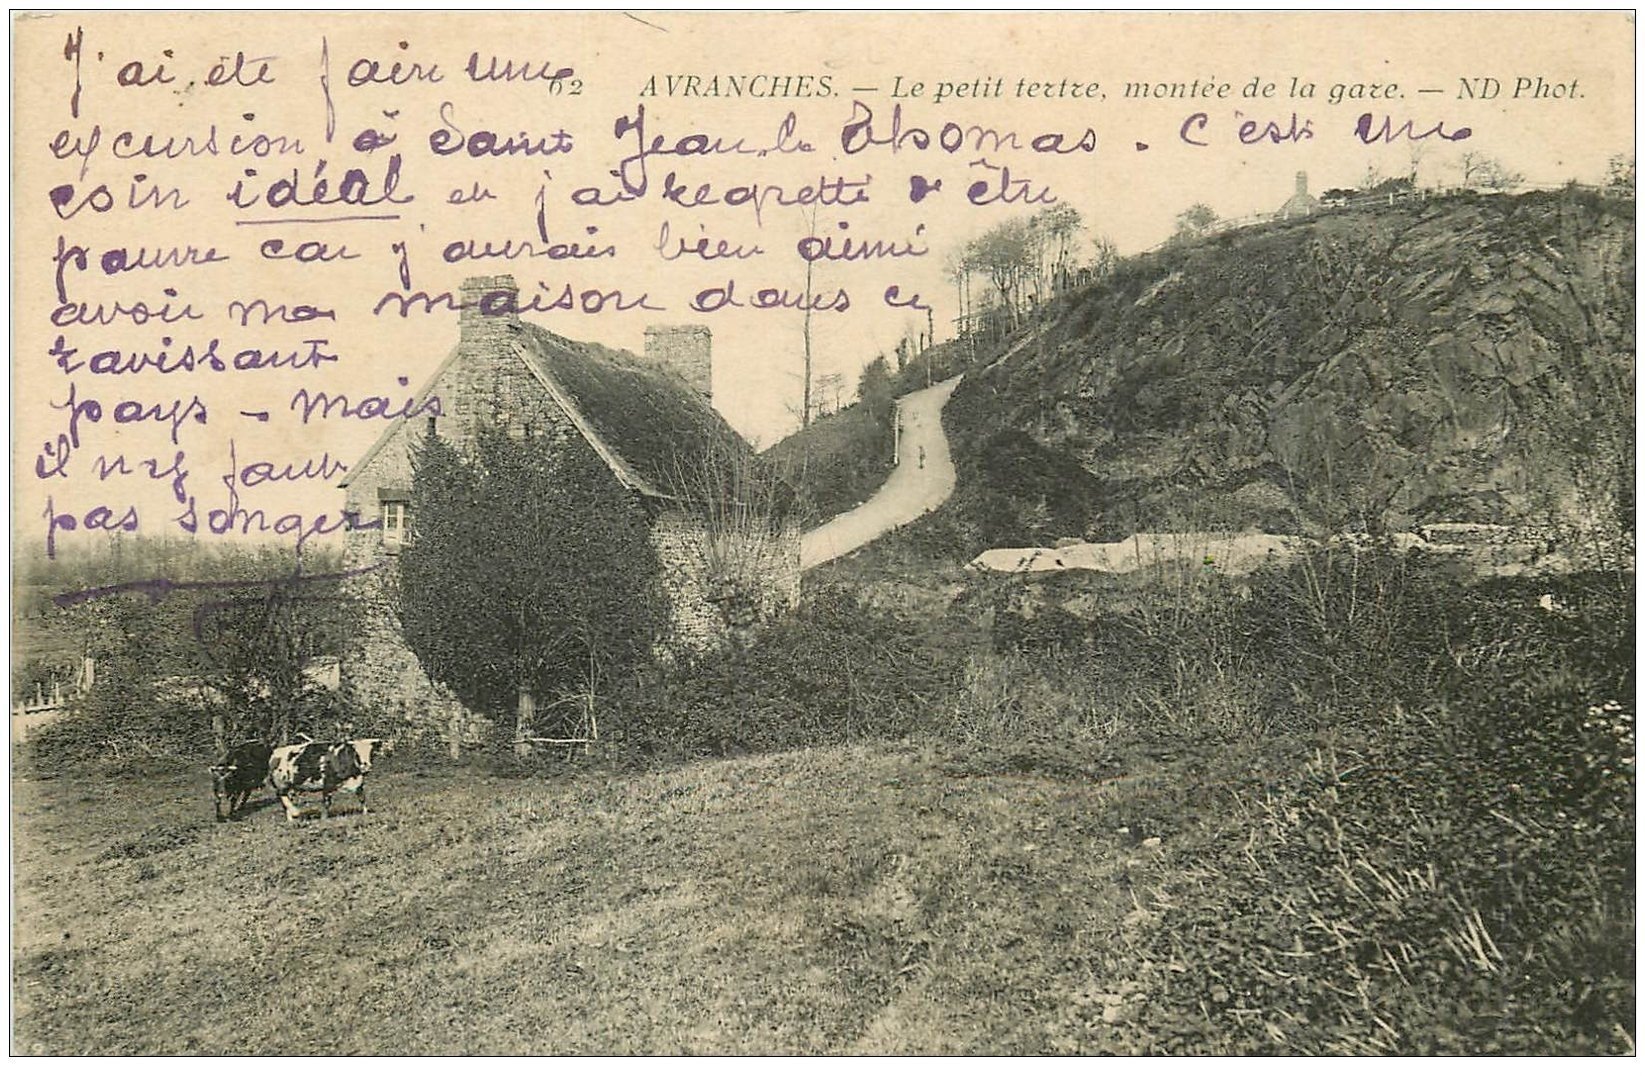 J'ai été faire une
62 AVRANCHES. — Le petit tertre, montée de la gare. — ND Phot.
excursion à Saint Jean le Thomas. C'est un
coin idéal et j'ai regretté d'être
pauvre car j'aurais bien aimé
avoir ma maison dans ce
ravissant
pays - mais
il n'y faut
pas songer